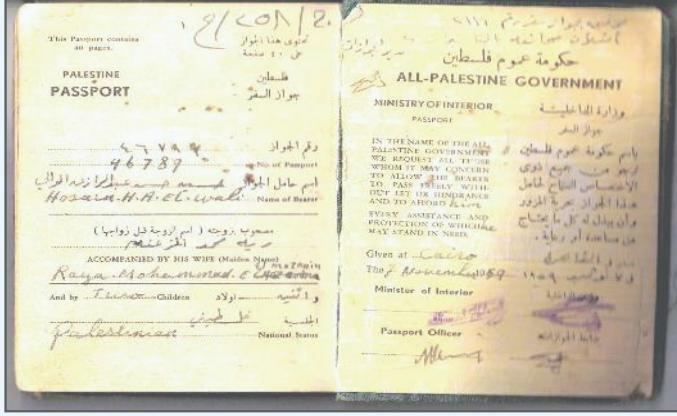 This Passport contains
40 pages.
تحتوى هذا الجواز
على ٤٠ صفحة
PALESTINE
PASSPORT
فلسطين
جواز السفر
رقم الجواز
46789
No. of Passport
اسم حامل الجواز
Hosain H.A. El-wali
Name of Bearer
مصحوب بزوجته ( اسم الزوجة قبل زواجها )
ACCOMPANIED BY HIS WIFE (Maiden Name)
Raya Mohammad El
And by Two Children
اولاد
الجنسية فلسطيني
Palestinian National Status
حكومة عموم فلسطين
ALL-PALESTINE GOVERNMENT
MINISTRY OF INTERIOR
PASSPORT
وزارة الداخلية
جواز السفر
IN THE NAME OF THE ALL-
PALESTINE GOVERNMENT
WE REQUEST ALL THOSE
WHOM IT MAY CONCERN
TO ALLOW THE BEARER
TO PASS FREELY WITH-
OUT LET OR HINDRANCE
AND TO AFFORD him
EVERY ASSISTANCE AND
PROTECTION OF WHICH he
MAY STAND IN NEED.
باسم حكومة عموم فلسطين
نرجو من جميع ذوى
الاختصاص السماح لحامل
هذا الجواز بحرية المرور
وأن يبذل له كل ما يحتاج
من مساعدة أو رعاية .
Given at Cairo
The November 1959
Minister of Interior
وزير الداخلية
Passport Officer
ضابط الجوازات